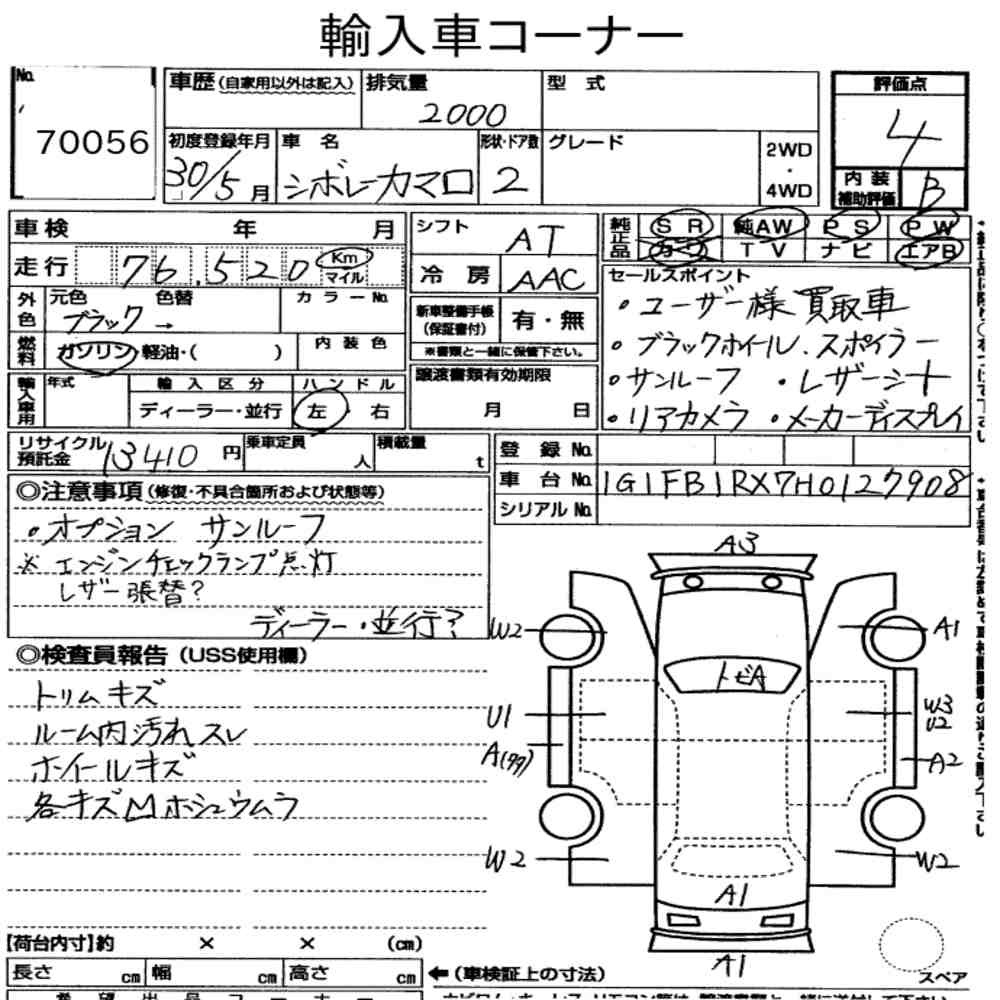 輸入車コーナー
No.
70056
車歴（自家用以外は記入）
排気量
2000
型 式
評価点
4
初度登録年月
30/5月
車 名
シボレーカマロ
形状・ドア数
2
グレード
2WD
・
4WD
内 装
補助評価
B
車検 年 月
走行 76,520 Km
マイル
シフト
AT
冷 房
AAC
純正品
S R 純AW P S P W
カワ T V ナ ビ エアB
外色
元色 色替
ブラック →
カラーNo.
燃料
ガソリン・軽油・( )
内 装 色
新車整備手帳
（保証書付）
有・無
※書類と一緒に保管下さい。
セールスポイント
・ユーザー様 買取車
・ブラックホイール．スポイラー
・サンルーフ ・レザーシート
・リアカメラ ・メーカーディスプレイ
輸入車用
年式
輸 入 区 分
ディーラー・並行
ハ ン ド ル
左・右
譲渡書類有効期限
月 日
リサイクル
預託金
13410 円
乗車定員
人
積載量
t
登 録 No.
車 台 No.
1G1FB1RX7H0127908
シリアルNo.
◎注意事項（修復・不具合箇所および状態等）
・オプション サンルーフ
※ エンジンチェックランプ点灯
レザー張替？
ディーラー・並行？
◎検査員報告（USS使用欄）
トリムキズ
ルーム内汚れスレ
ホイールキズ
各キズMホシュウムラ
A3
W2
A1
トビA
U1
W3
U2
A(99)
A2
W2
W2
A1
A1
スペア
【荷台内寸】約 × × (cm)
長さ cm 幅 cm 高さ cm
←（車検証上の寸法）